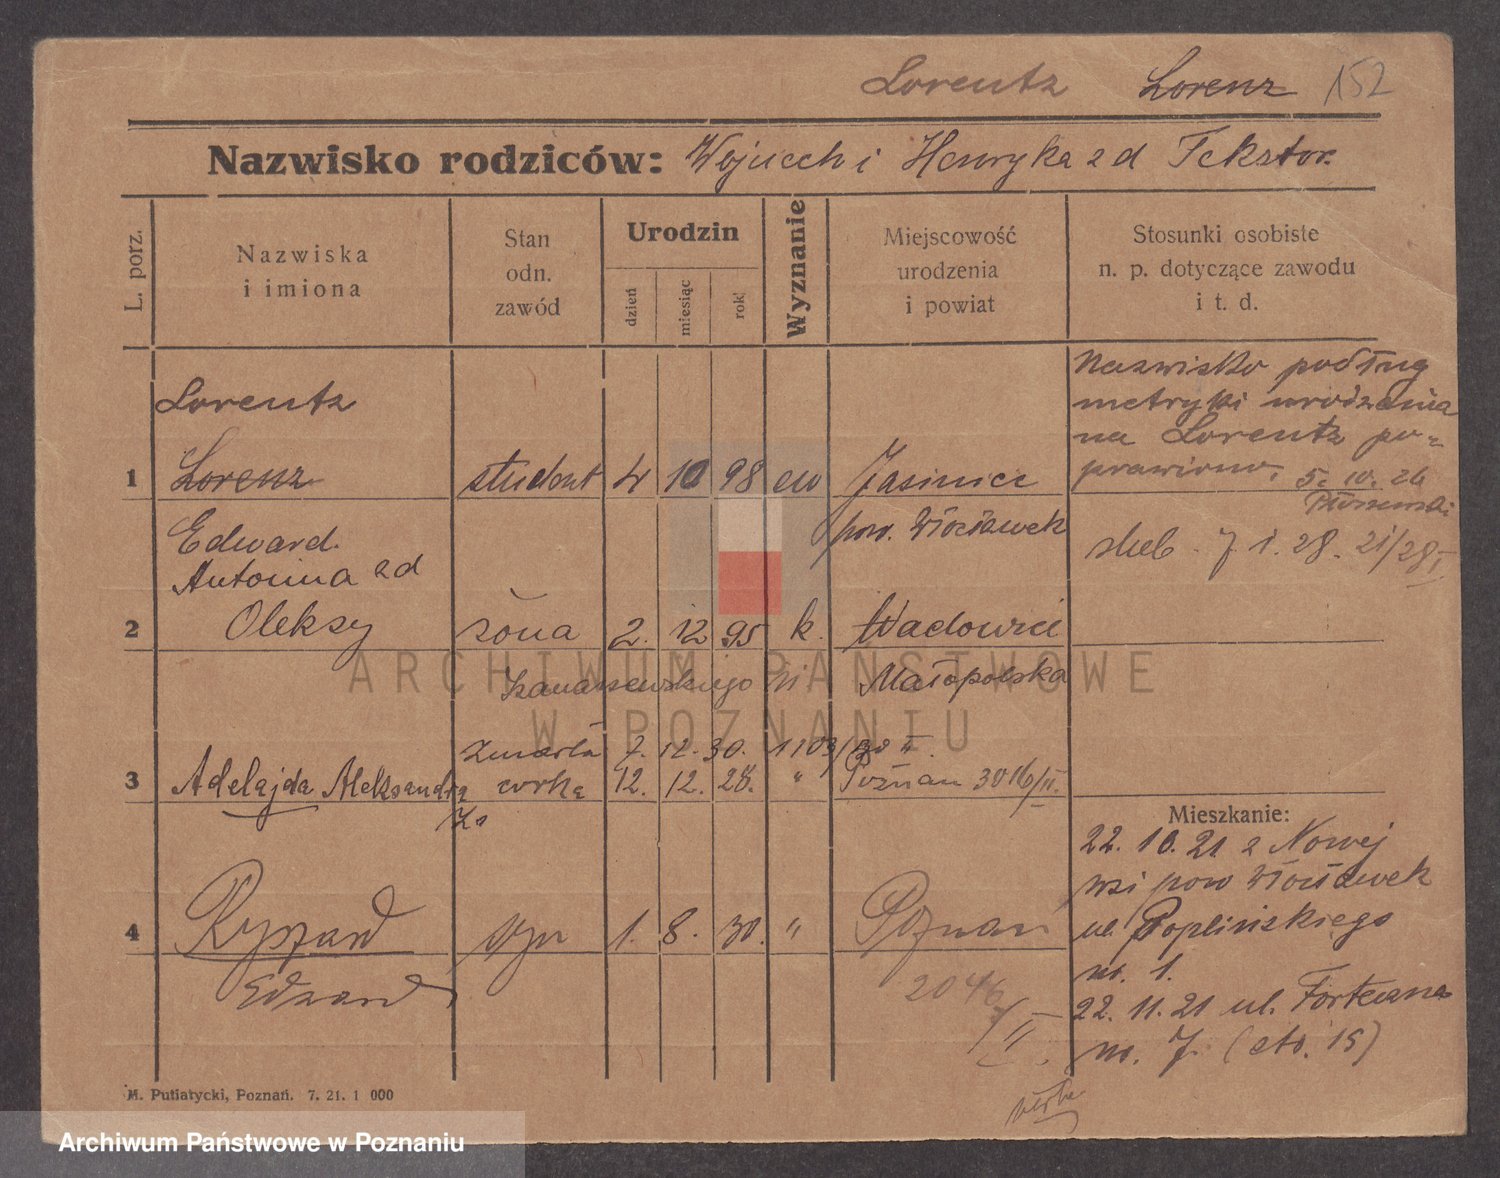 Lorentz Lorenz 152
Nazwisko rodziców: Wojciech i Henryka z d Tekstor.
L. porz.
Nazwiska
i imiona
Stan
odn.
zawód
Urodzin
dzień
miesiąc
rok
Wyznanie
Miejscowość
urodzenia
i powiat
Stosunki osobiste
n. p. dotyczące zawodu
i t. d.
Lorentz
1 Lorenz student 4 10 98 ew Jasiniec
pow. Włocławek
Nazwisko podług
metryki urodzenia
na Lorentz po-
prawiono. 5. 10. 26
ślub. 7 1. 28. 21/28 I
Edward.
Antonina z d
2 Oleksy żona 2. 12 95 k. Wadowice
Małopolska
zmarła 7. 12. 30. 1103/30 II.
3 Adelajda Aleksandra córka 12. 12. 28. " Poznań 3016/II.
4 Ryszard syn 1. 8. 30. " Poznań
Edward
2046
/II
Mieszkanie:
22. 10. 21 z Nowej
wsi pow Włocławek
ul. Poplińskiego
no. 1.
22. 11. 21 ul. Forteczna
no. 7. (eto. 15)
M. Putiatycki, Poznań. 7. 21. 1 000
ARCHIWUM PAŃSTWOWE
W POZNANIU
Archiwum Państwowe w Poznaniu